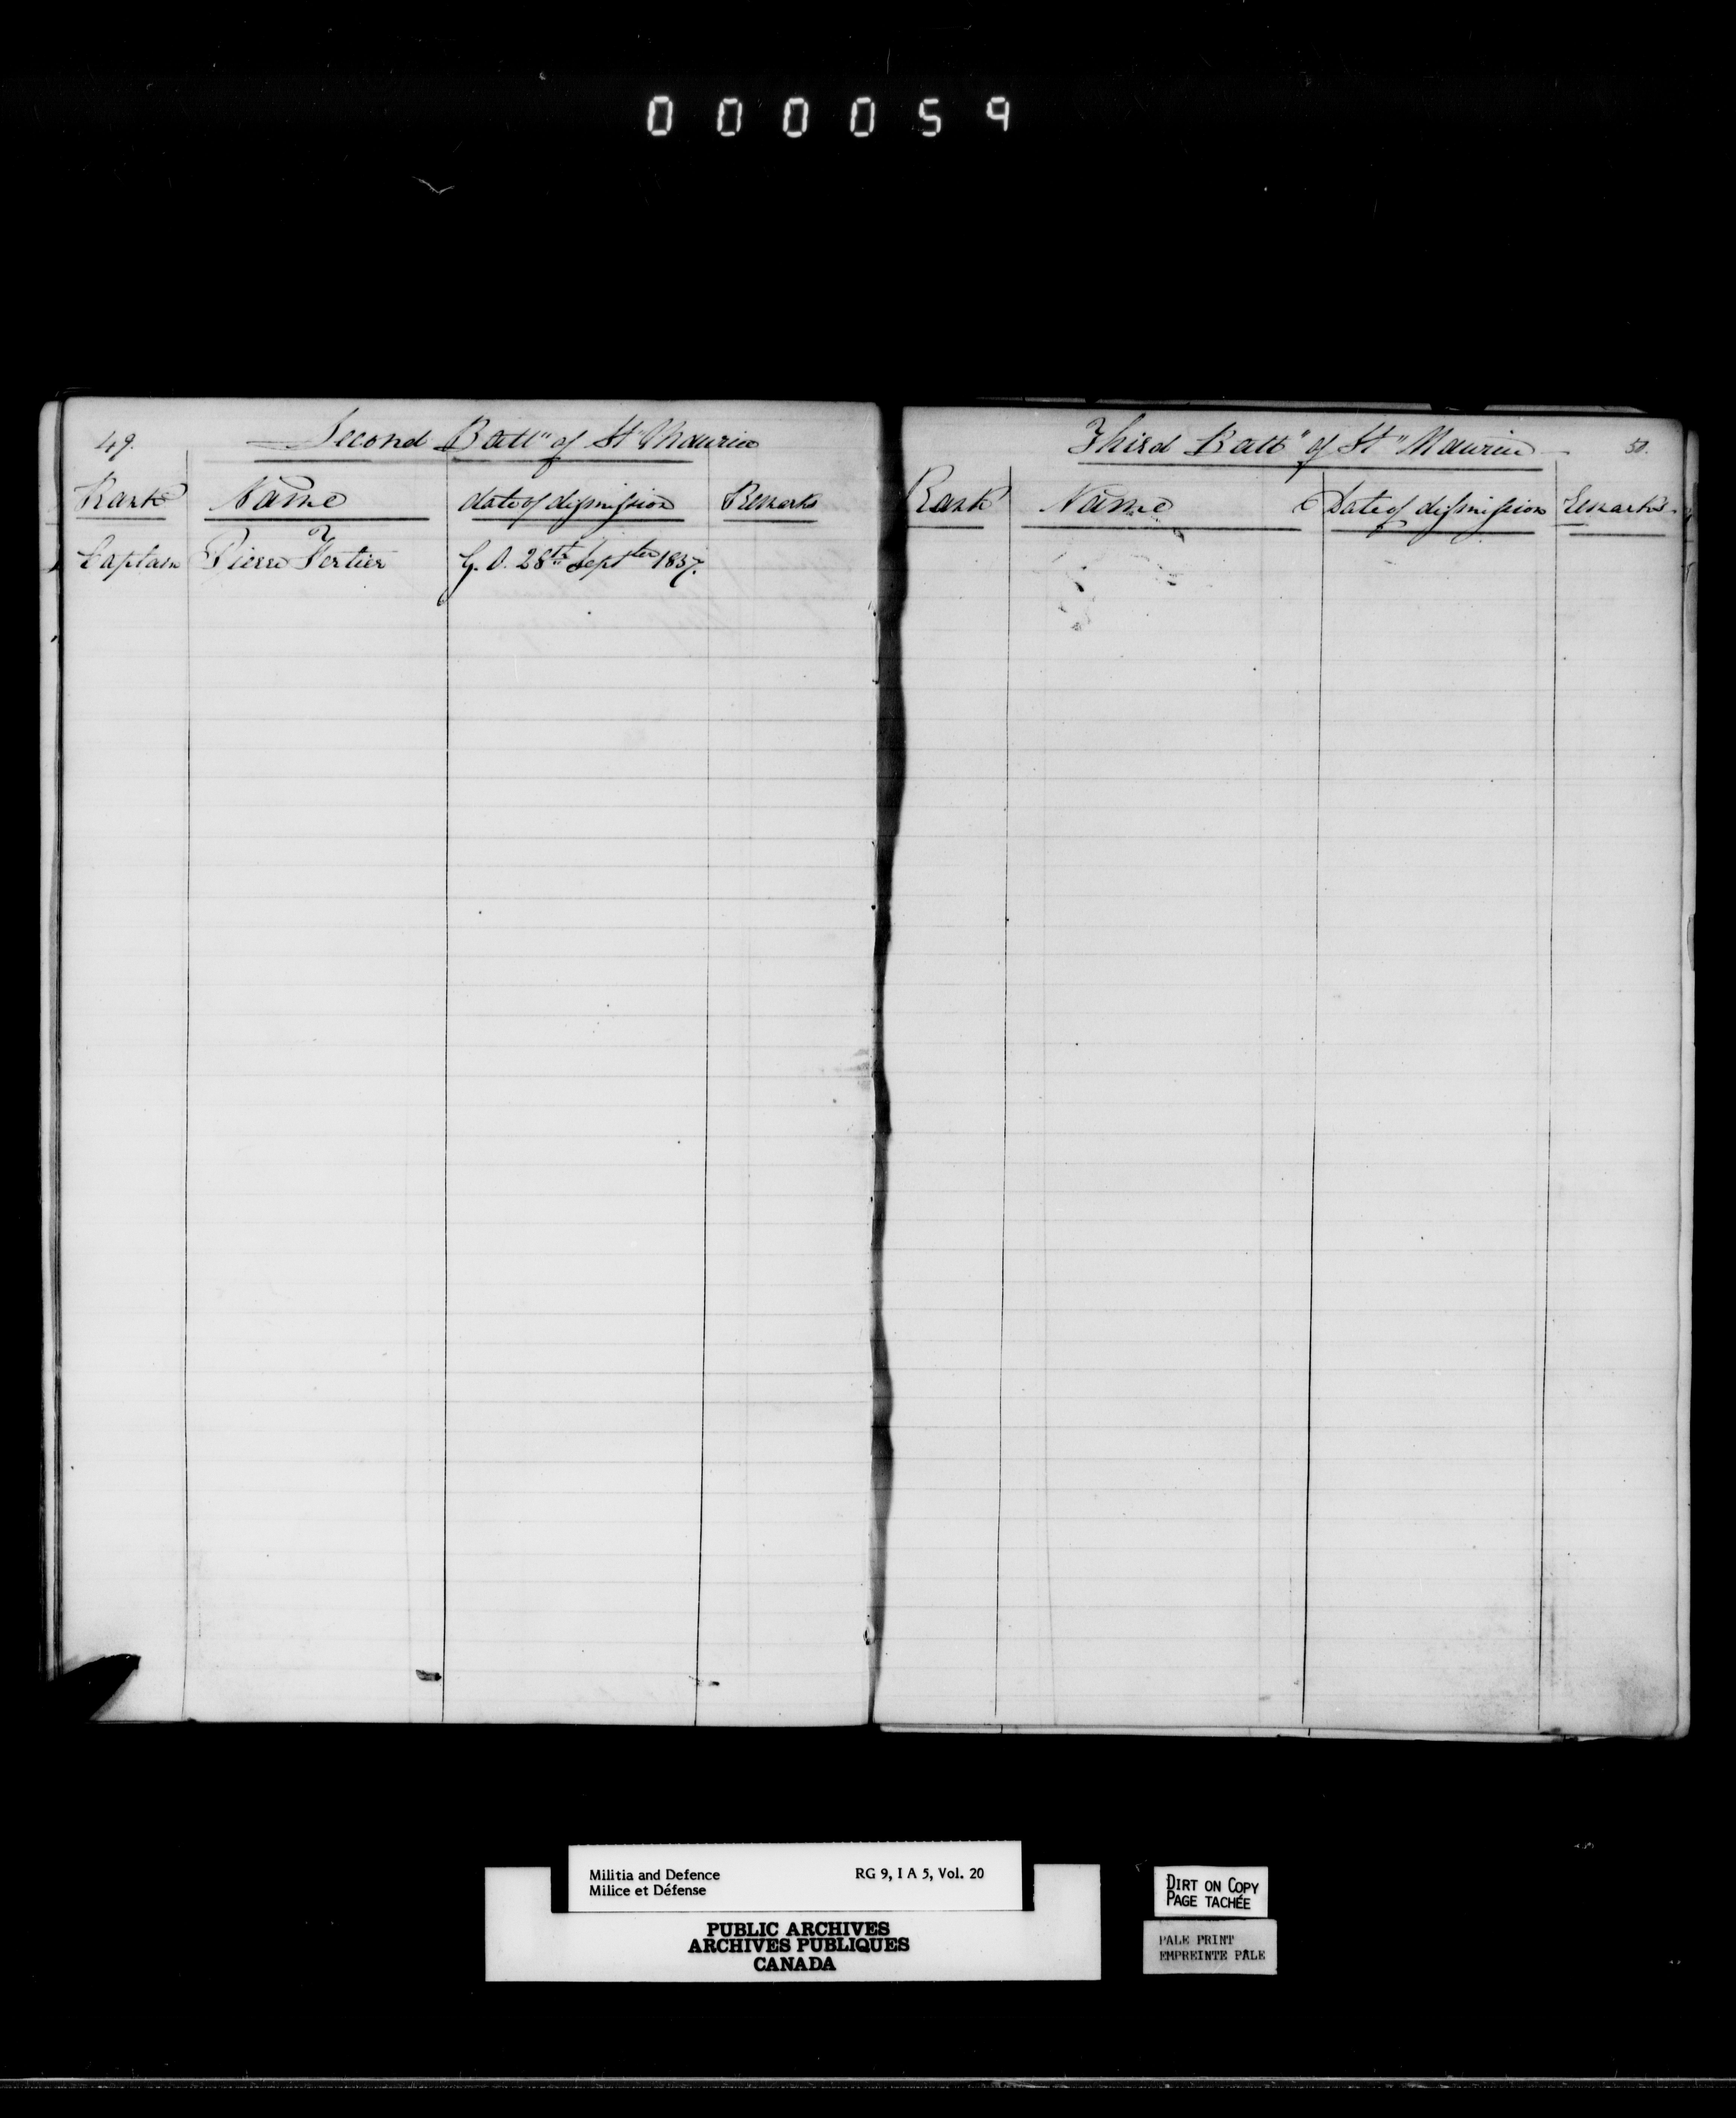 000059
49.
Second Batt" of St" Maurice
Rank Name date of dismission Remarks
Captain Pierre Fortier G. O. 28th Septber 1837.
Third Batt" of St" Maurice
50.
Rank Name Date of dismission Remarks
Militia and Defence RG 9, I A 5, Vol. 20
Milice et Défense
PUBLIC ARCHIVES
ARCHIVES PUBLIQUES
CANADA
DIRT ON COPY
PAGE TACHÉE
PALE PRINT
EMPREINTE PÂLE